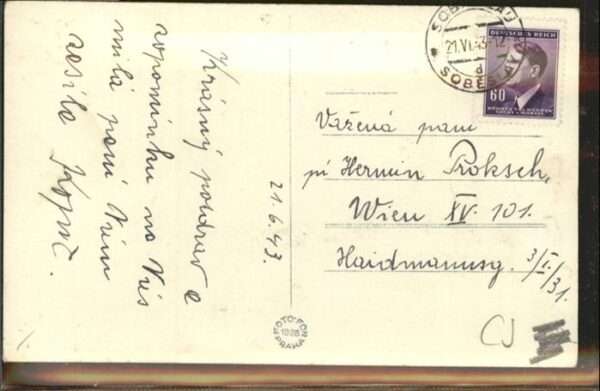 Krásný pozdrav a
vzpomínku na Vás
milá paní Vám
zasílá
21.6.43.
SOBIESLAU
21.VI.43-12
d
SOBĚSLAV
DEUTSCHES REICH
60
BÖHMEN UND MÄHREN
ČECHY A MORAVA
Vážená paní
pí Hermin Proksch,
Wien XV. 101.
Haidmannsg. 3/I./31.
FOTO-FON
1028
PRAHA
CJ